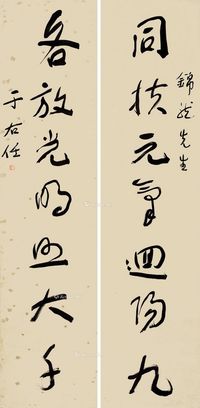 錦能先生
同扶元氣迴陽九
各放光明照大千
于右任